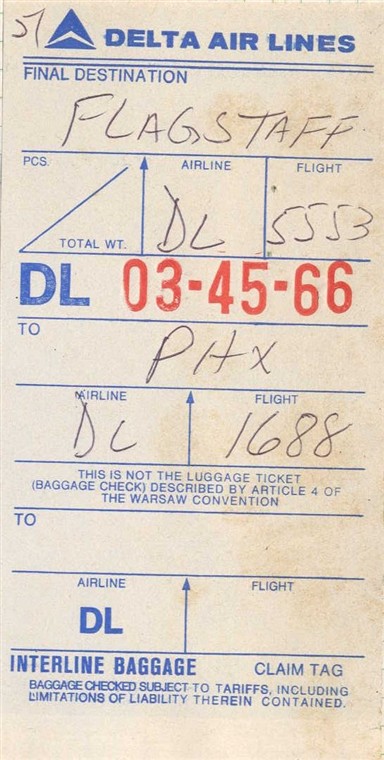 57
DELTA AIR LINES
FINAL DESTINATION
FLAGSTAFF
PCS. AIRLINE FLIGHT
TOTAL WT. DL 5553
DL 03-45-66
TO
PHX
AIRLINE FLIGHT
DL 1688
THIS IS NOT THE LUGGAGE TICKET
(BAGGAGE CHECK) DESCRIBED BY ARTICLE 4 OF
THE WARSAW CONVENTION
TO
AIRLINE FLIGHT
DL
INTERLINE BAGGAGE CLAIM TAG
BAGGAGE CHECKED SUBJECT TO TARIFFS, INCLUDING
LIMITATIONS OF LIABILITY THEREIN CONTAINED.